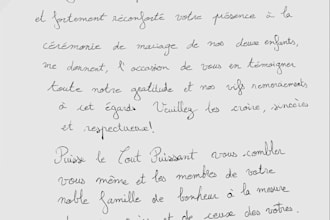 et fortement réconforté votre présence à la
cérémonie de mariage de nos deux enfants,
me donnent, l'occasion de vous en témoigner
toute notre gratitude et nos vifs remerciements
à cet égard. Veuillez les croire, sincères
et respectueux!
Puisse le Tout Puissant vous combler
vous même et les membres de votre
noble famille de bonheur à la mesure
et de ceux des vôtres.